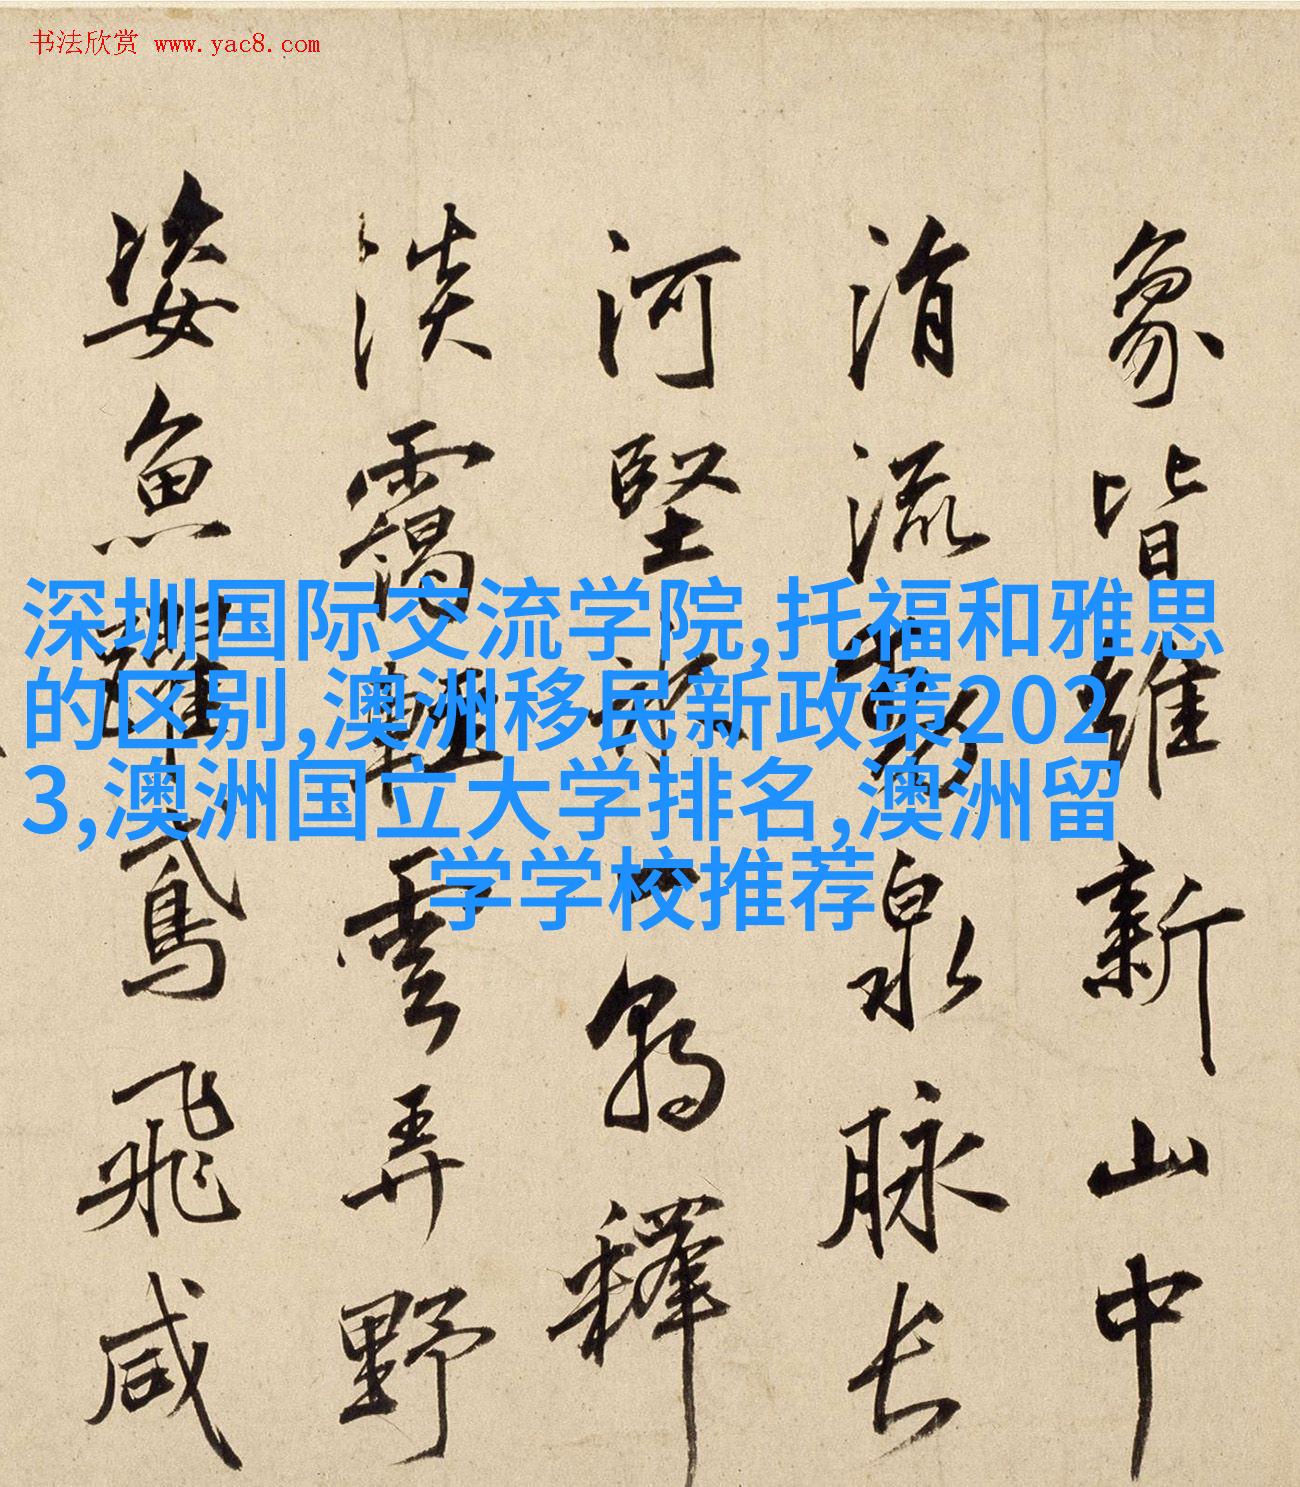 书法欣赏 www.yac8.com
象皆維新山中
涓流動泉脉长
河堅冰一朝釋
淡靄輕雲弄野
姿魚躍鳶飛咸
深圳国际交流学院,托福和雅思
的区别,澳洲移民新政策202
3,澳洲国立大学排名,澳洲留
学学校推荐